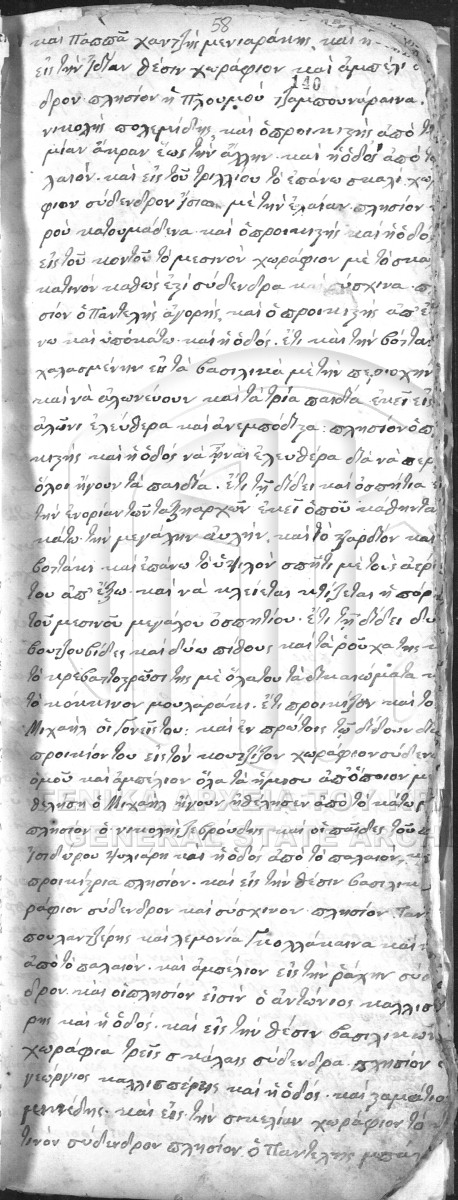 58
καὶ Παππᾶ χαντζῆ μενιαράκης καὶ η
εἰς τὴν ἰδίαν θέσιν χωράφιον καὶ ἀμπέλι
110
δρον πλησίον ἡ Πλουμοῦ τζαμπουνάραινα
νικολῆς πολεμίδης καὶ ὁ προικιτζῆς ἀπὸ τη
μίαν ἄκραν ἕως τὴν ἄλλην καὶ ἡ ὁδὸς ἀπὸ τὸ
λαιόν. καὶ εἰς τοῦ τριλλίου τὸ ἐπάνω σκαλὶ χω
φιον σύδενδρον ἴσια μὲ τὴν ἐλαίαν πλησίον
ροῦ κατουμάδενα καὶ ὁ προικιτζῆς καὶ ἡ ὁδὸς
εἰς τοῦ κοντοῦ τὸ μεσινὸν χωράφιον μὲ τὸ σκα
κατινὸν καθὼς ἔχι σύδενδρα καὶ σύσχινα π
σίον ὁ Παντελῆς ἀγορῆς καὶ ὁ προικιτζῆς ἀπ' ἐπά
νω καὶ ὑποκάτω καὶ ἡ ὁδός. ἔτι καὶ τὴν βοϊταν
χαλασμένην εἰς τὰ βασιλικὰ μὲ τὴν περιοχὴν
καὶ νὰ ἁλωνεύουν καὶ τὰ τρία παιδία ἐκεῖ εἰς
ἁλῶνι ἐλεύθερα καὶ ἀνεμπόδιζα: πλησίον ὁ π
κιτζῆς καὶ ἡ ὁδὸς νὰ ἦναι ἐλευθέρα διὰ νὰ περ
ὅλοι ἤγουν τὰ παιδία. ἔτι τῇ δίδει καὶ ὀσπήτια ε
τὴν ἐνορίαν τῶν ταξηαρχῶν ἐκεῖ ὁποῦ κάθηντα
κάτω τὴν μεγάλην αὐλὴν καὶ τὸ χαρδίον καὶ
βοϊτάκι καὶ ἐπάνω τὸ ὑψιλὸν σπῆτι μὲ τοὺς ἀερι
του ἀπ' ἔξω καὶ νὰ κλείεται κτίζεται ἡ πόρτ
τοῦ μεσινοῦ μεγάλου ὀσπητίου. ἔτι τῇ δίδει δύ
βουτζουβίδες καὶ δύω πίθους καὶ τὰ ροῦχα της
τὸ κρεβατοστρῶσι της μὲ ὅλα του τὰ δικαιώματα
τὸ κόκκινον μουλαράκι. ἔτι προικίζουν καὶ τὸ
Μιχαὴλ οἱ Γονεῖς του: καὶ ἐν πρώτοις τῷ δίδουν διὰ
προικίον του εἰς τὸν κουτζίζον χωράφιον σύδεν
ὁμοῦ καὶ ἀμπέλιον ὅλα τὰ ἥμισυ ἀπ' ὅποιον με
θελήσῃ ὁ Μιχαὴλ ἤγουν ἠθέλησεν ἀπὸ τὸ κάτω
πλησίον ὁ νικολῆς ζεβρούδης καὶ οἱ παῖδες τοῦ
Ἰσιδώρου ψυλιάρη καὶ ἡ ὁδὸς ἀπὸ τὸ παλαιὸν
προικιτζρια πλησίον. καὶ εἰς τὴν θέσιν βασιλικ
ράφιον σύδενδρον καὶ σύσχινον πλησίον Παν
πουλαντζέρης καὶ λεμονία Γκολλάκαινα καὶ
ἀπὸ τὸ παλαιόν. καὶ ἀμπέλιον εἰς τὴν ῥάχην συδ
δρον. καὶ οἱ πλησίον εἰσὶν ὁ ἀντώνιος καλλισ
ρης καὶ ἡ ὁδός. καὶ εἰς τὴν θέσιν βασιλικῶν
χωράφια τρεῖς σκάλαις σύδενδρα πλησίον
γεώργιος καλλισπέρης καὶ ἡ ὁδὸς καὶ
μεννέδης. καὶ εἰς τὴν σικελίαν χωράφιον τὸ
τινὸν σύδενδρον πλησίον ὁ Παντελῆς
ΓΕΝΙΚΑ ΑΡΧΕΙΑ ΤΟΥ ΚΡΑ
GENERAL STATE ARCHI